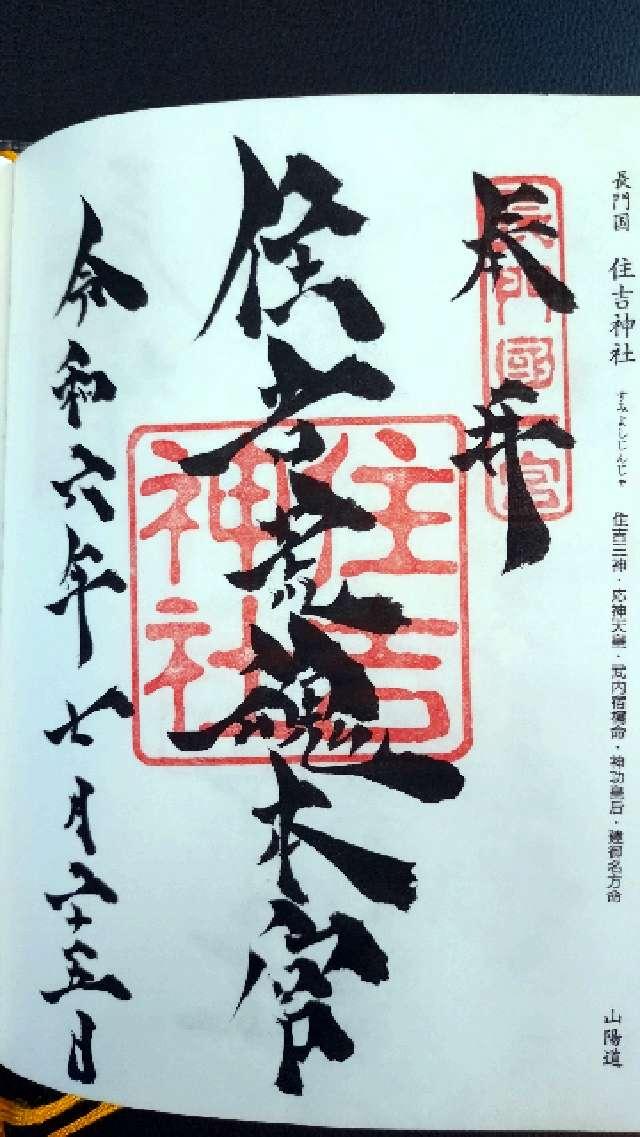 長門国 住吉神社 すみよしじんじゃ 住吉三神・応神天皇・武内宿禰命・神功皇后・建御名方命 山陽道
奉拝
長門國一宮
住吉荒魂本宮
住吉
神社
令和六年七月二十五日